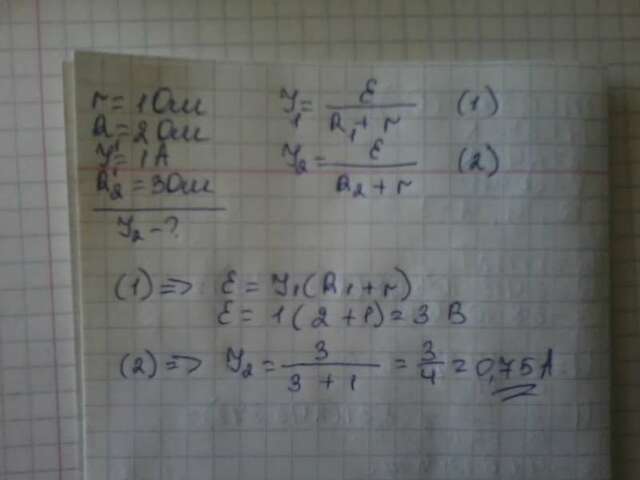 r = 1 Ом
R₁ = 2 Ом
J₁ = 1 А
R₂ = 3 Ом
J₂ - ?
J₁ = ℰ / (R₁ + r) (1)
J₂ = ℰ / (R₂ + r) (2)
(1) => ℰ = J₁(R₁ + r)
ℰ = 1(2 + 1) = 3 В
(2) => J₂ = 3 / (3 + 1) = 3/4 = 0,75 А